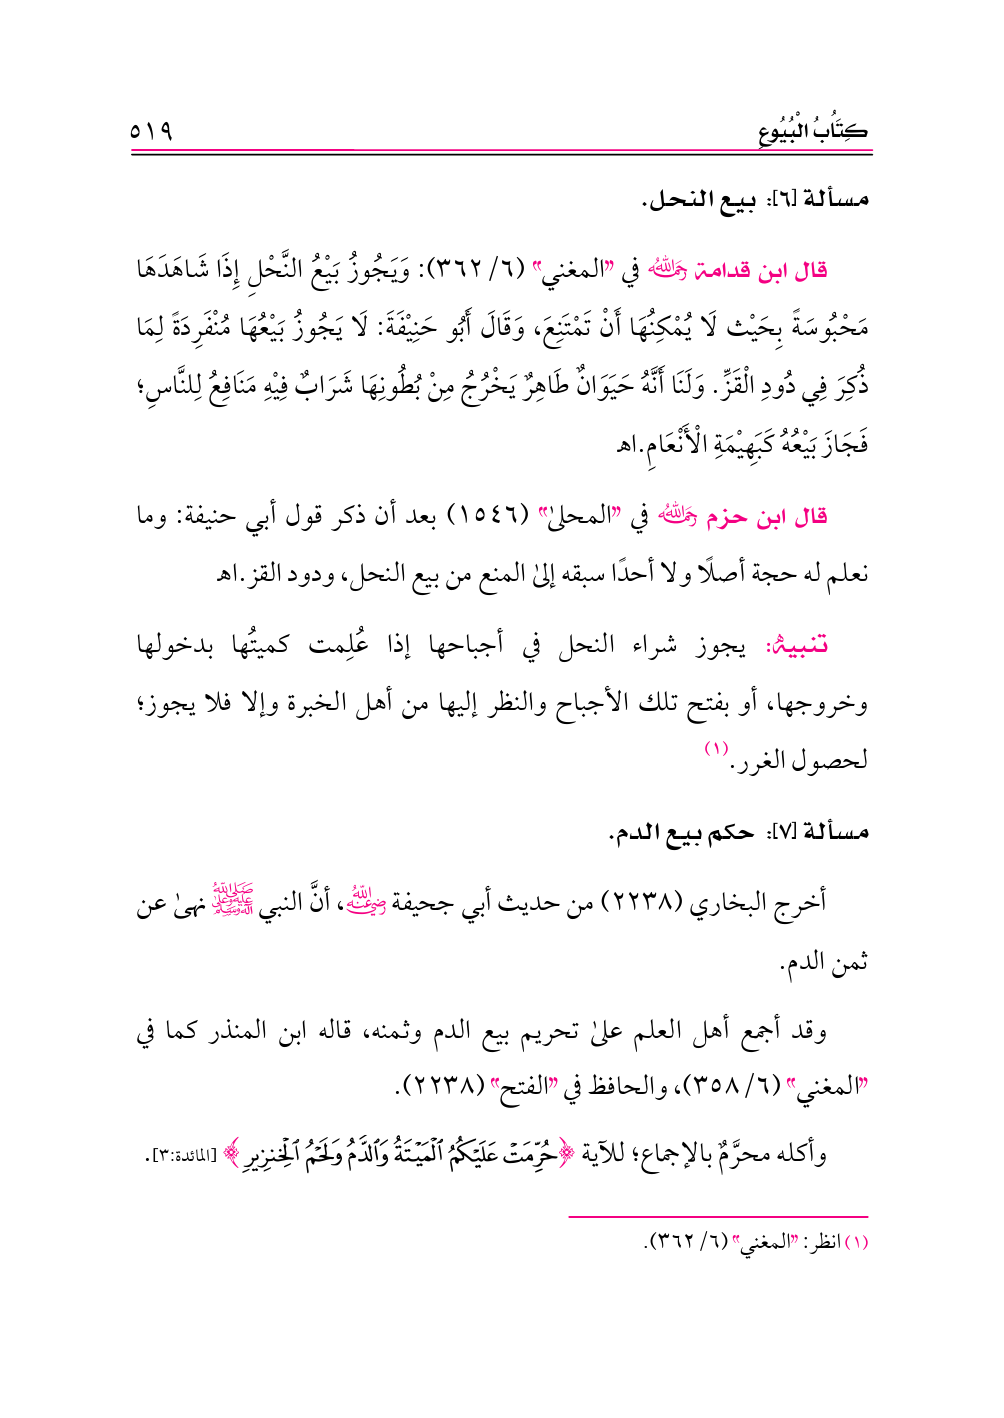 كِتَابُ الْبُيُوعِ ٥١٩
مسألة [٦]: بيع النحل.
قال ابن قدامة رحمه الله في "المغني" (٦/ ٣٦٢): وَيَجُوزُ بَيْعُ النَّحْلِ إِذَا شَاهَدَهَا
مَحْبُوسَةً بِحَيْث لَا يُمْكِنُهَا أَنْ تَمْتَنِعَ، وَقَالَ أَبُو حَنِيْفَةَ: لَا يَجُوزُ بَيْعُهَا مُنْفَرِدَةً لِمَا
ذُكِرَ فِي دُودِ الْقَزِّ. وَلَنَا أَنَّهُ حَيَوَانٌ طَاهِرٌ يَخْرُجُ مِنْ بُطُونِهَا شَرَابٌ فِيْهِ مَنَافِعُ لِلنَّاسِ؛
فَجَازَ بَيْعُهُ كَبَهِيْمَةِ الْأَنْعَامِ.اهـ
قال ابن حزم رحمه الله في "المحلىٰ" (١٥٤٦) بعد أن ذكر قول أبي حنيفة: وما
نعلم له حجة أصلًا ولا أحدًا سبقه إلىٰ المنع من بيع النحل، ودود القز.اهـ
تنبيهٌ: يجوز شراء النحل في أجباحها إذا عُلِمت كميتُها بدخولها
وخروجها، أو بفتح تلك الأجباح والنظر إليها من أهل الخبرة وإلا فلا يجوز؛
لحصول الغرر.(١)
مسألة [٧]: حكم بيع الدم.
أخرج البخاري (٢٢٣٨) من حديث أبي جحيفة رضي الله عنه، أنَّ النبي صلى الله عليه وعلى آله وسلم نهىٰ عن
ثمن الدم.
وقد أجمع أهل العلم علىٰ تحريم بيع الدم وثمنه، قاله ابن المنذر كما في
"المغني" (٦/ ٣٥٨)، والحافظ في "الفتح" (٢٢٣٨).
وأكله محرَّمٌ بالإجماع؛ للآية ﴿حُرِّمَتْ عَلَيْكُمُ ٱلْمَيْتَةُ وَٱلدَّمُ وَلَحْمُ ٱلْخِنزِيرِ﴾ [المائدة:٣].
(١) انظر: "المغني" (٦/ ٣٦٢).